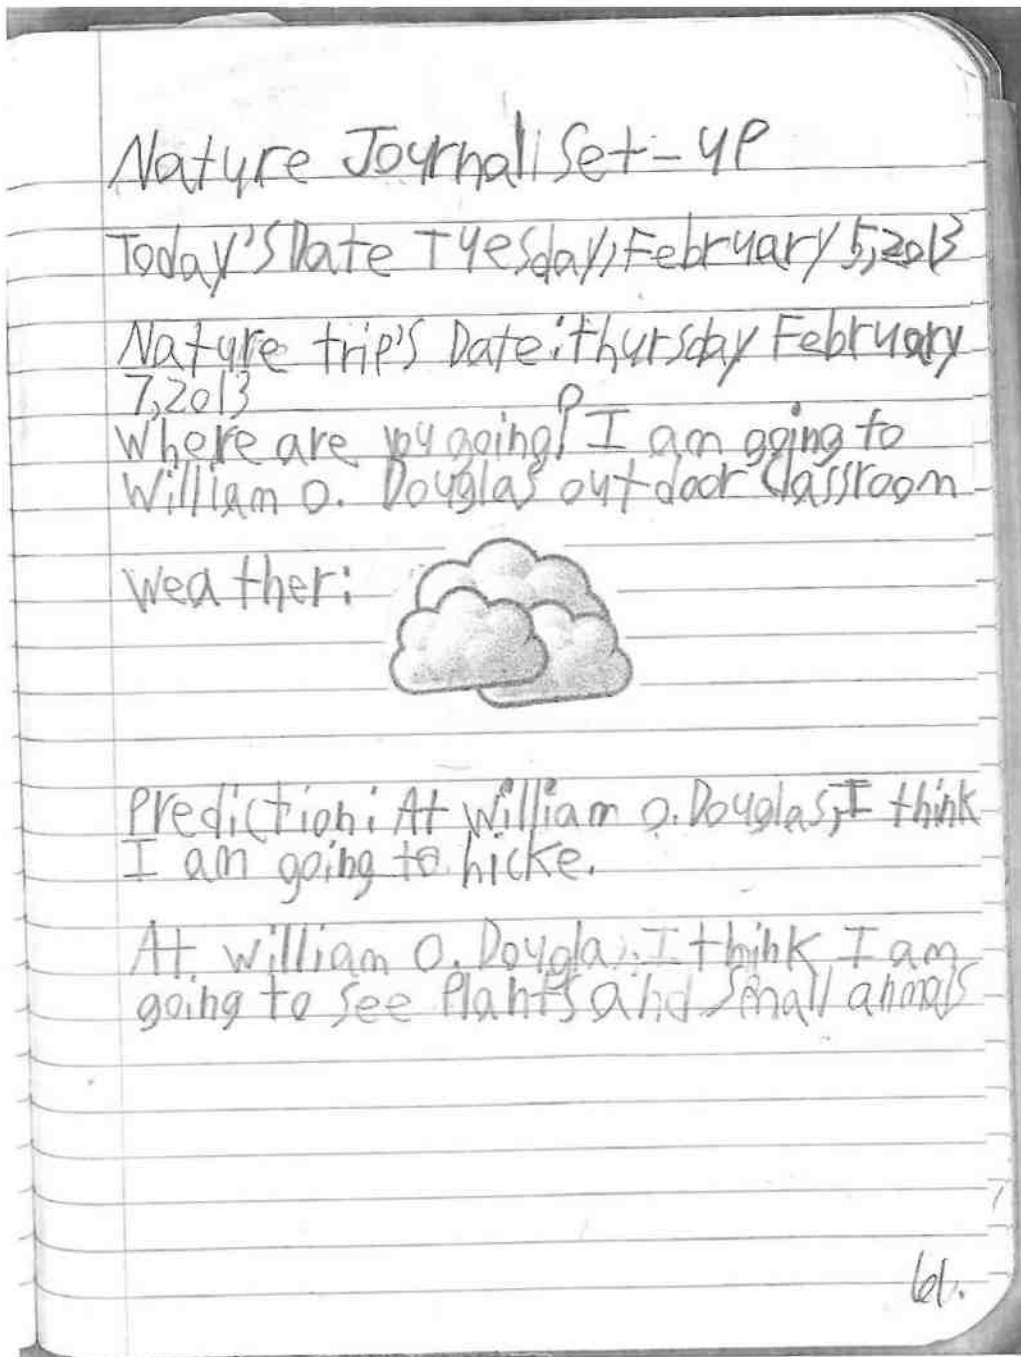 Nature Journal: Set-up
Today's Date Tuesday, February 5, 2013
Nature trip's Date: thursday February
7, 2013
Where are you going? I am going to
William O. Douglas outdoor Classroom
Weather:
Prediction: At William O. Douglas, I think
I am going to hicke.
At william O. Douglas, I think I am
going to see Plants and small animals
61.